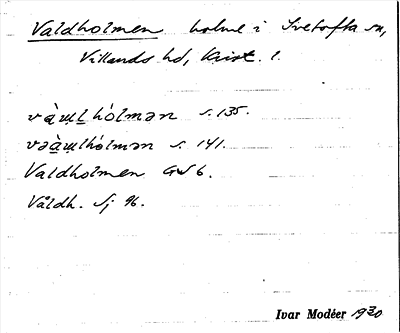 Valdholmen holme i Ivetofta sn,
Villands hd, Krist. l.
v à ɯ l hòlmən s. 135.
vəàɯlhòlmən s. 141.
Valdholmen GS 6.
Våldh. Sj 96.
Ivar Modéer 1930